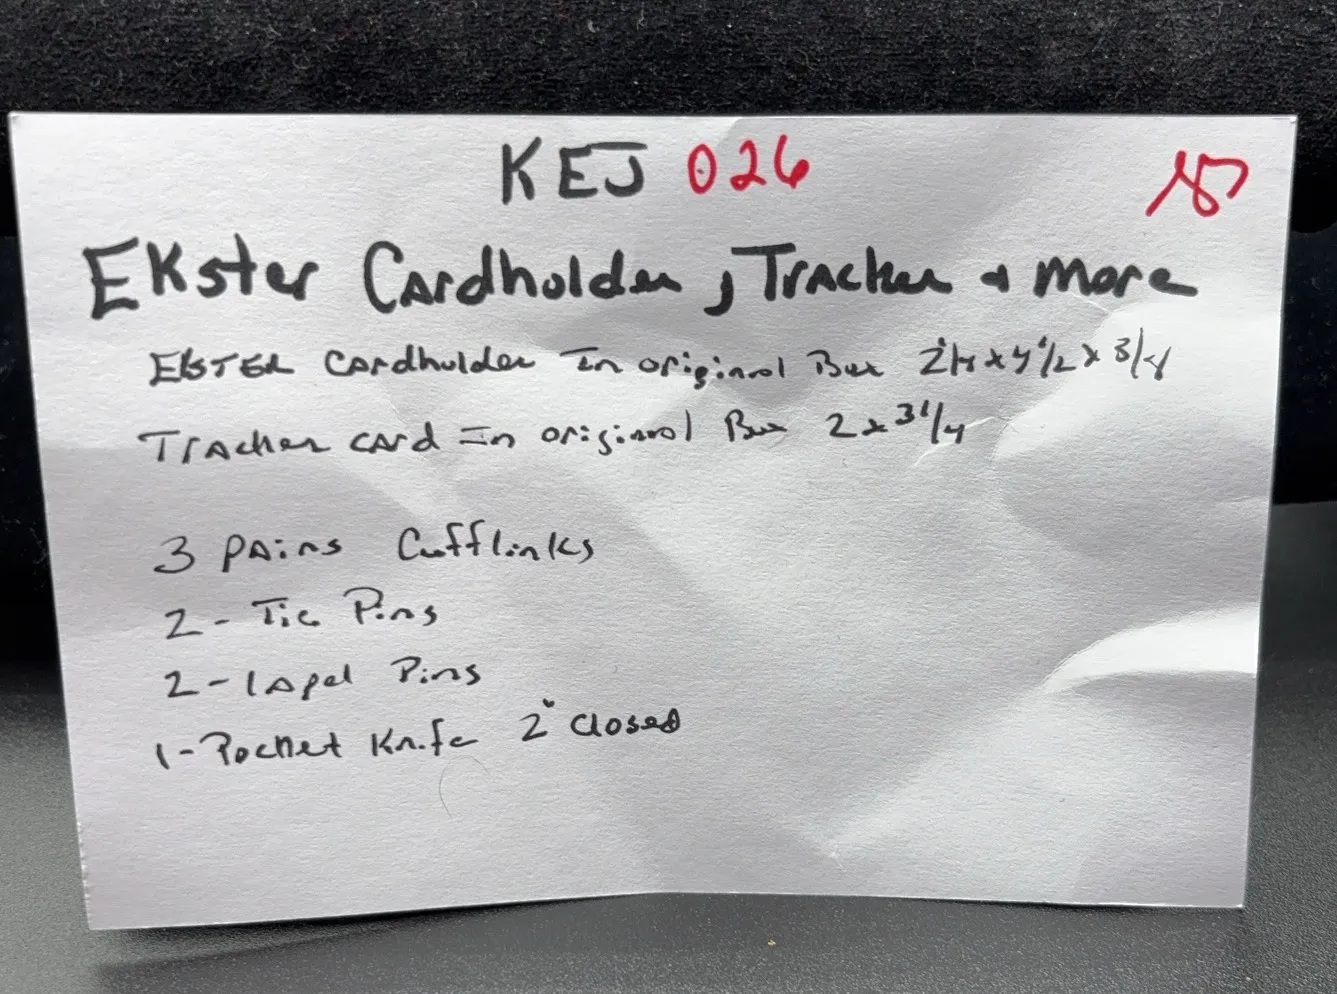 KEJ 026
Ekster Cardholder, Tracker & more
EKSTER Cardholder In original Box x 4 1/2 x 3/4
Tracker card In original Box 2 x 3 1/4
3 pairs Cufflinks
2 - Tie Pins
2 - lapel Pins
1 - Pocket Knife 2" closed